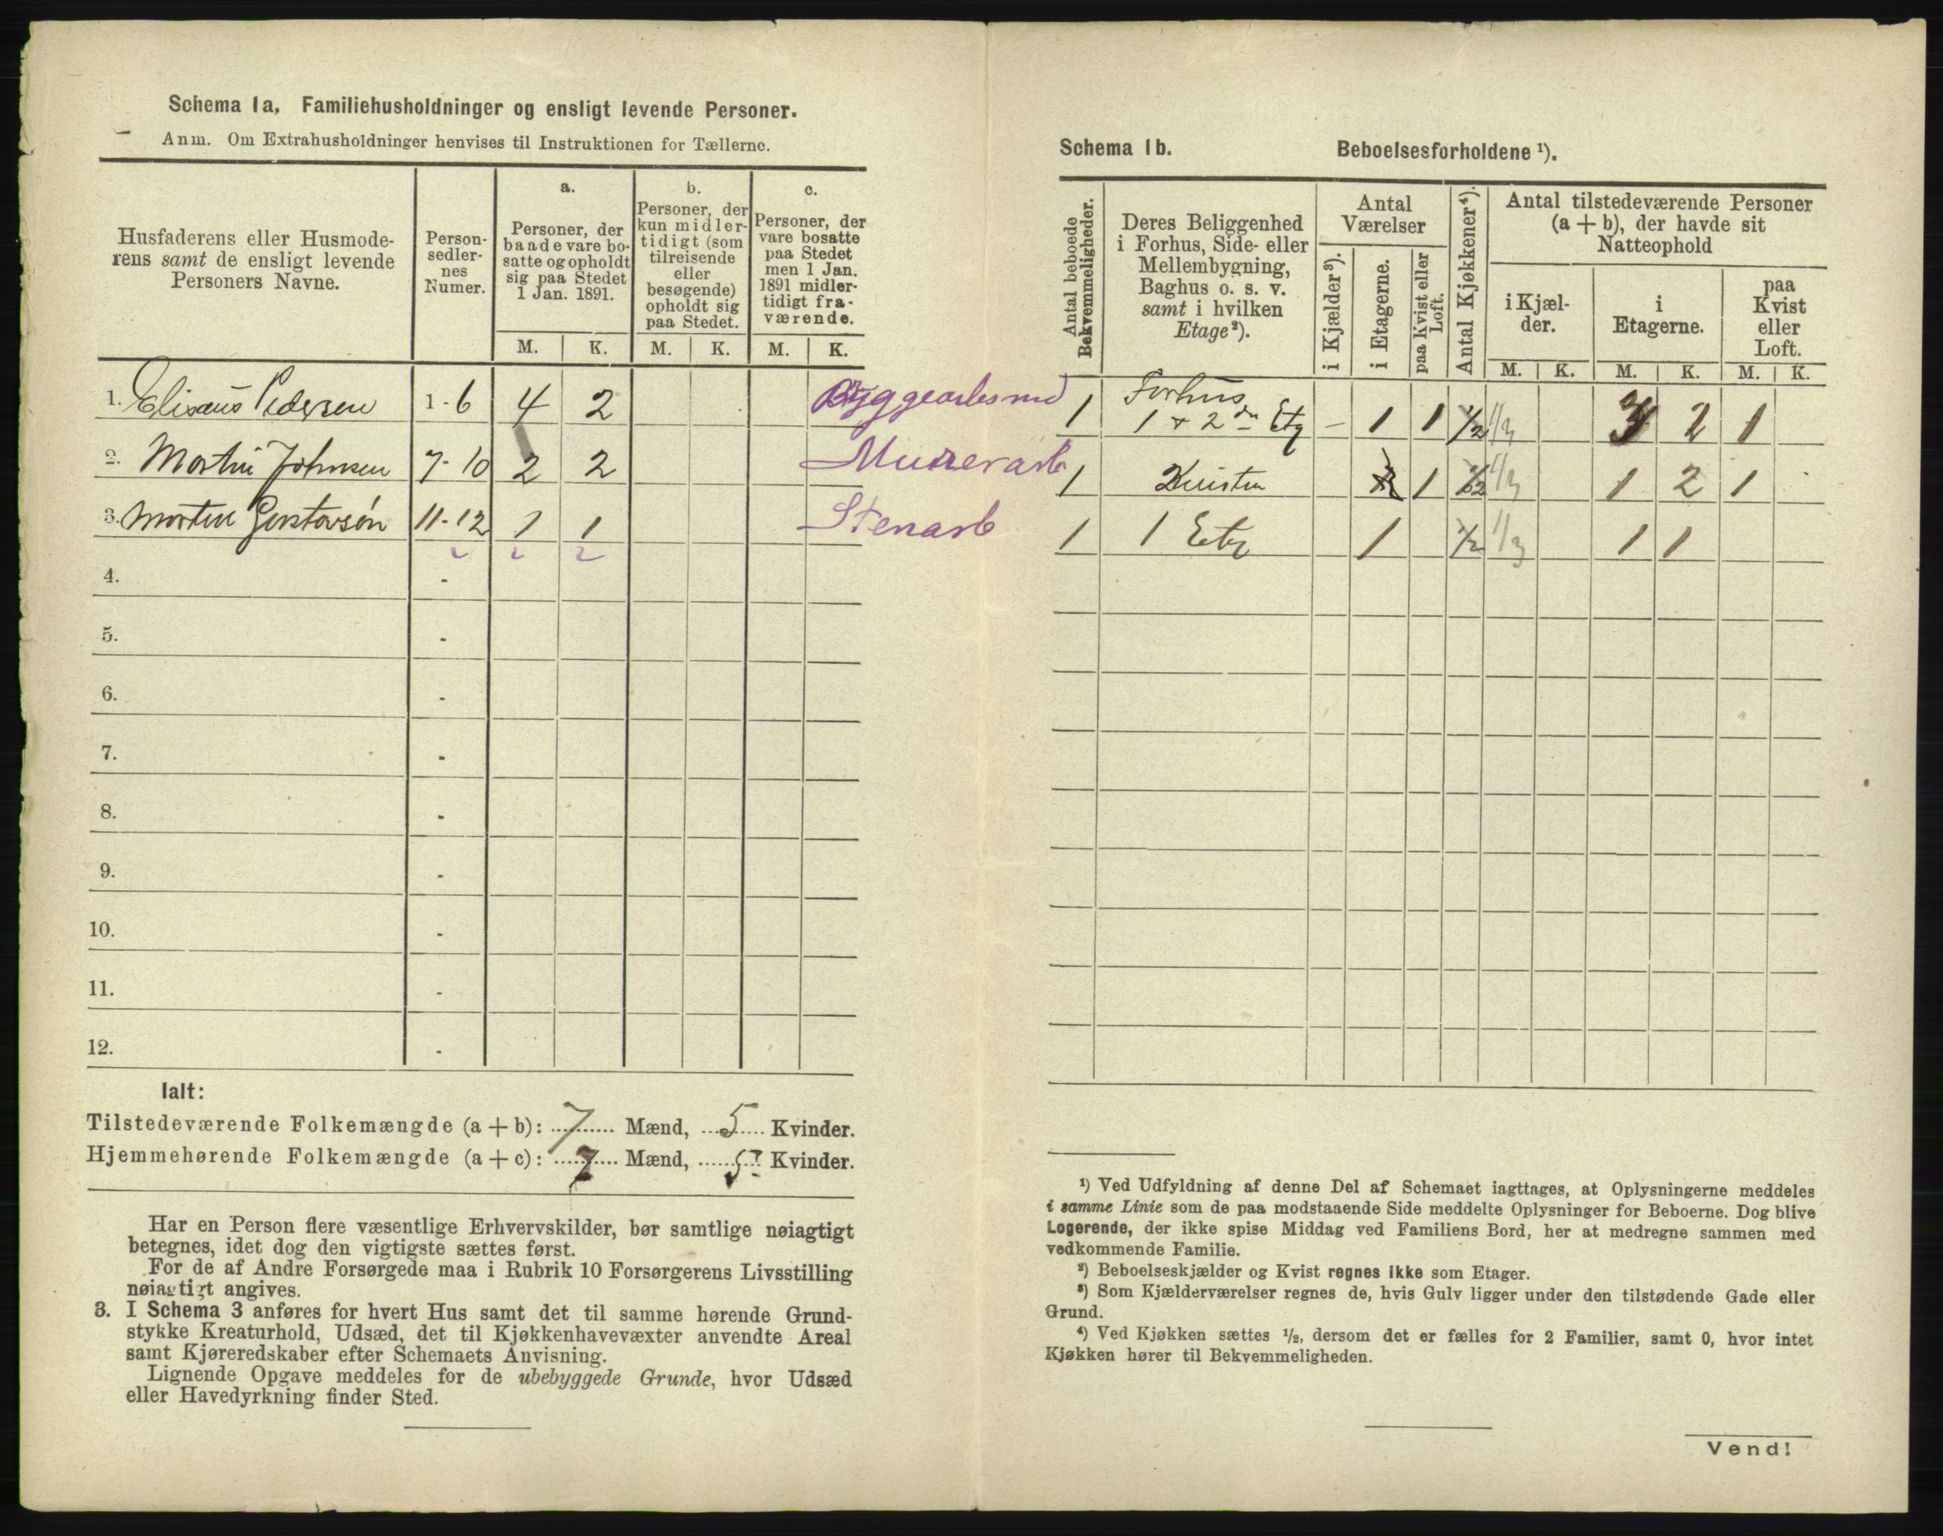 Schema 1a. Familiehusholdninger og ensligt levende Personer.
Anm. Om Extrahusholdninger henvises til Instruktionen for Tællerne.
Husfaderens eller Husmoderens samt de ensligt levende Personers Navne.
Person-sedlernes Numer.
a.
Personer, der baade vare bosatte og opholdt sig paa Stedet 1 Jan. 1891.
b.
Personer, der kun midlertidigt (som tilreisende eller besøgende) opholdt sig paa Stedet.
c.
Personer, der vare bosatte paa Stedet men 1 Jan. 1891 midlertidigt fraværende.
M. K. M. K. M. K.
1. Elisæus Pedersen 1-6 4 2 Byggearbsmd
2. Martin Johnsen 7-10 2 2 Murerarb
3. Morten Gustavsøn 11-12 1 1 Stenarb
4. -
5. -
6. -
7. -
8. -
9. -
10. -
11. -
12. -
Ialt:
Tilstedeværende Folkemængde (a + b): 7 Mænd, 5 Kvinder.
Hjemmehørende Folkemængde (a + c): 7 Mænd, 5 Kvinder.
Har en Person flere væsentlige Erhvervskilder, bør samtlige nøiagtigt
betegnes, idet dog den vigtigste sættes først.
For de af Andre Forsørgede maa i Rubrik 10 Forsørgerens Livsstilling
nøiagtigt angives.
3. I Schema 3 anføres for hvert Hus samt det til samme hørende Grund-
stykke Kreaturhold, Udsæd, det til Kjøkkenhavevæxter anvendte Areal
samt Kjøreredskaber efter Schemaets Anvisning.
Lignende Opgave meddeles for de ubebyggede Grunde, hvor Udsæd
eller Havedyrkning finder Sted.
Schema 1b. Beboelsesforholdene ¹).
Antal beboede Bekvemmeligheder.
Deres Beliggenhed i Forhus, Side- eller Mellembygning, Baghus o. s. v. samt i hvilken Etage ²).
Antal Værelser
i Kjælder ³).
i Etagerne.
paa Kvist eller Loft.
Antal Kjøkkener ⁴).
Antal tilstedeværende Personer (a + b), der havde sit Natteophold
i Kjælder.
i Etagerne.
paa Kvist eller Loft.
M. K. M. K. M. K.
1 Forhus
1 + 2den Etg - 1 1 1/2 1/3 3 2 1
1 Kvisten 1 1/2 1/3 1 2 1
1 1 Etg 1 1/2 1/3 1 1
¹) Ved Udfyldning af denne Del af Schemaet iagttages, at Oplysningerne meddeles
i samme Linie som de paa modstaaende Side meddelte Oplysninger for Beboerne. Dog blive
Logerende, der ikke spise Middag ved Familiens Bord, her at medregne sammen med
vedkommende Familie.
²) Beboelseskjælder og Kvist regnes ikke som Etager.
³) Som Kjælderværelser regnes de, hvis Gulv ligger under den tilstødende Gade eller
Grund.
⁴) Ved Kjøkken sættes ½, dersom det er fælles for 2 Familier, samt 0, hvor intet
Kjøkken hører til Bekvemmeligheden.
Vend!